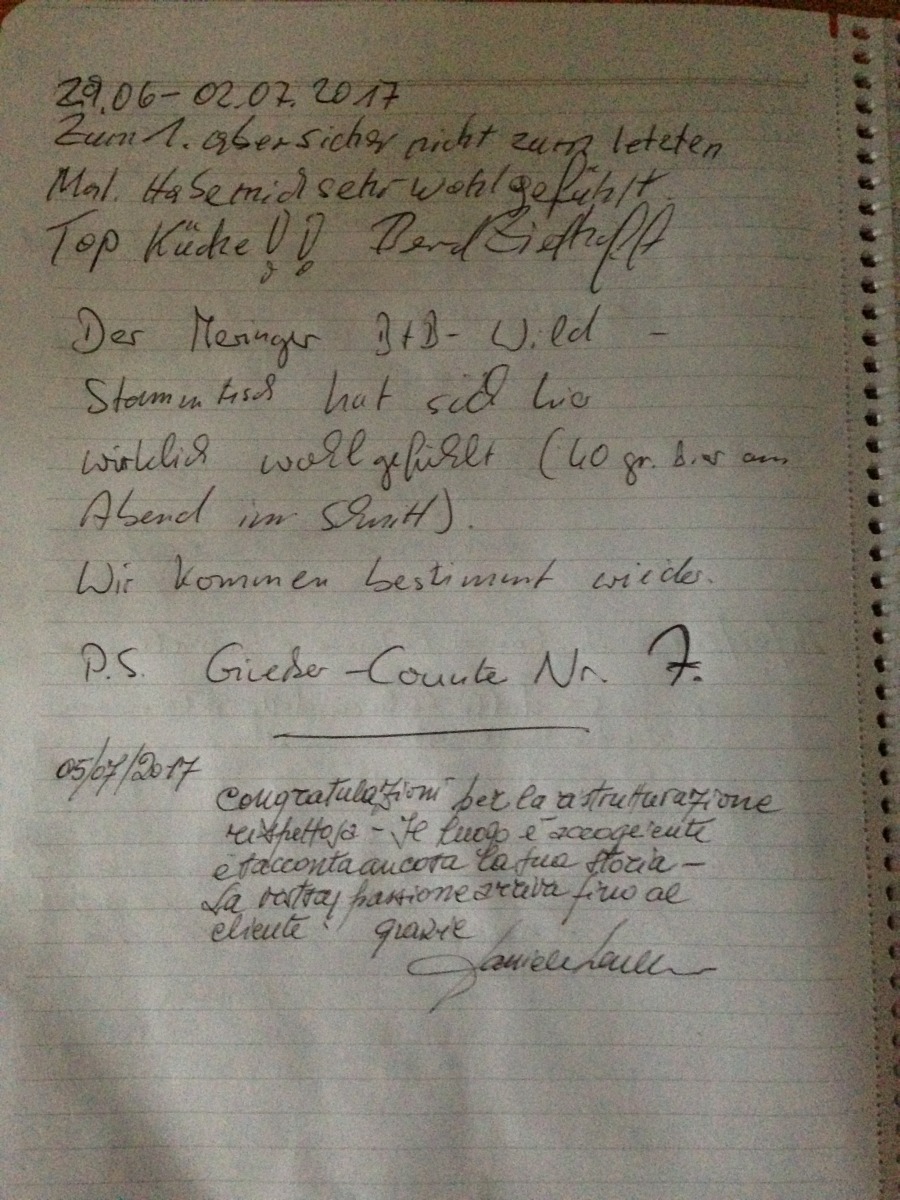 29.06 - 02.07.2017
Zum 1. aber sicher nicht zum letzten
Mal. Habe mich sehr wohl gefühlt.
Top Küche!! Bernd
Der Meringer B+B- Wild -
Stammtisch hat sich hier
wirklich wohl gefühlt (40 gr. Bier am
Abend im Schnitt).
Wir kommen bestimmt wieder.
P.S. Nr. 7.
05/07/2017
Congratulazioni per la ristrutturazione
rispettosa - Il luogo è accogliente
e racconta ancora la sua storia -
La vostra passione arriva fino al
cliente! grazie